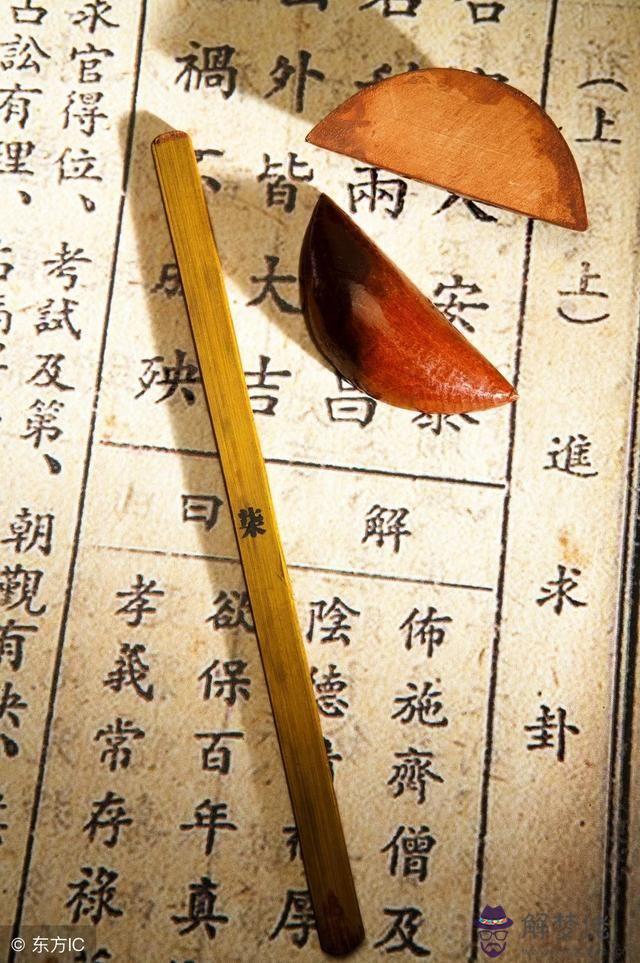 （上上）進求卦
安泰
兩昌
外皆大吉
禍不殃
解曰
佈施齊僧及
陰德厚
欲保百年真
孝義常存祿
求官得位、考試及第、朝觀有
訟有理、
柒
© 东方IC
解梦佬